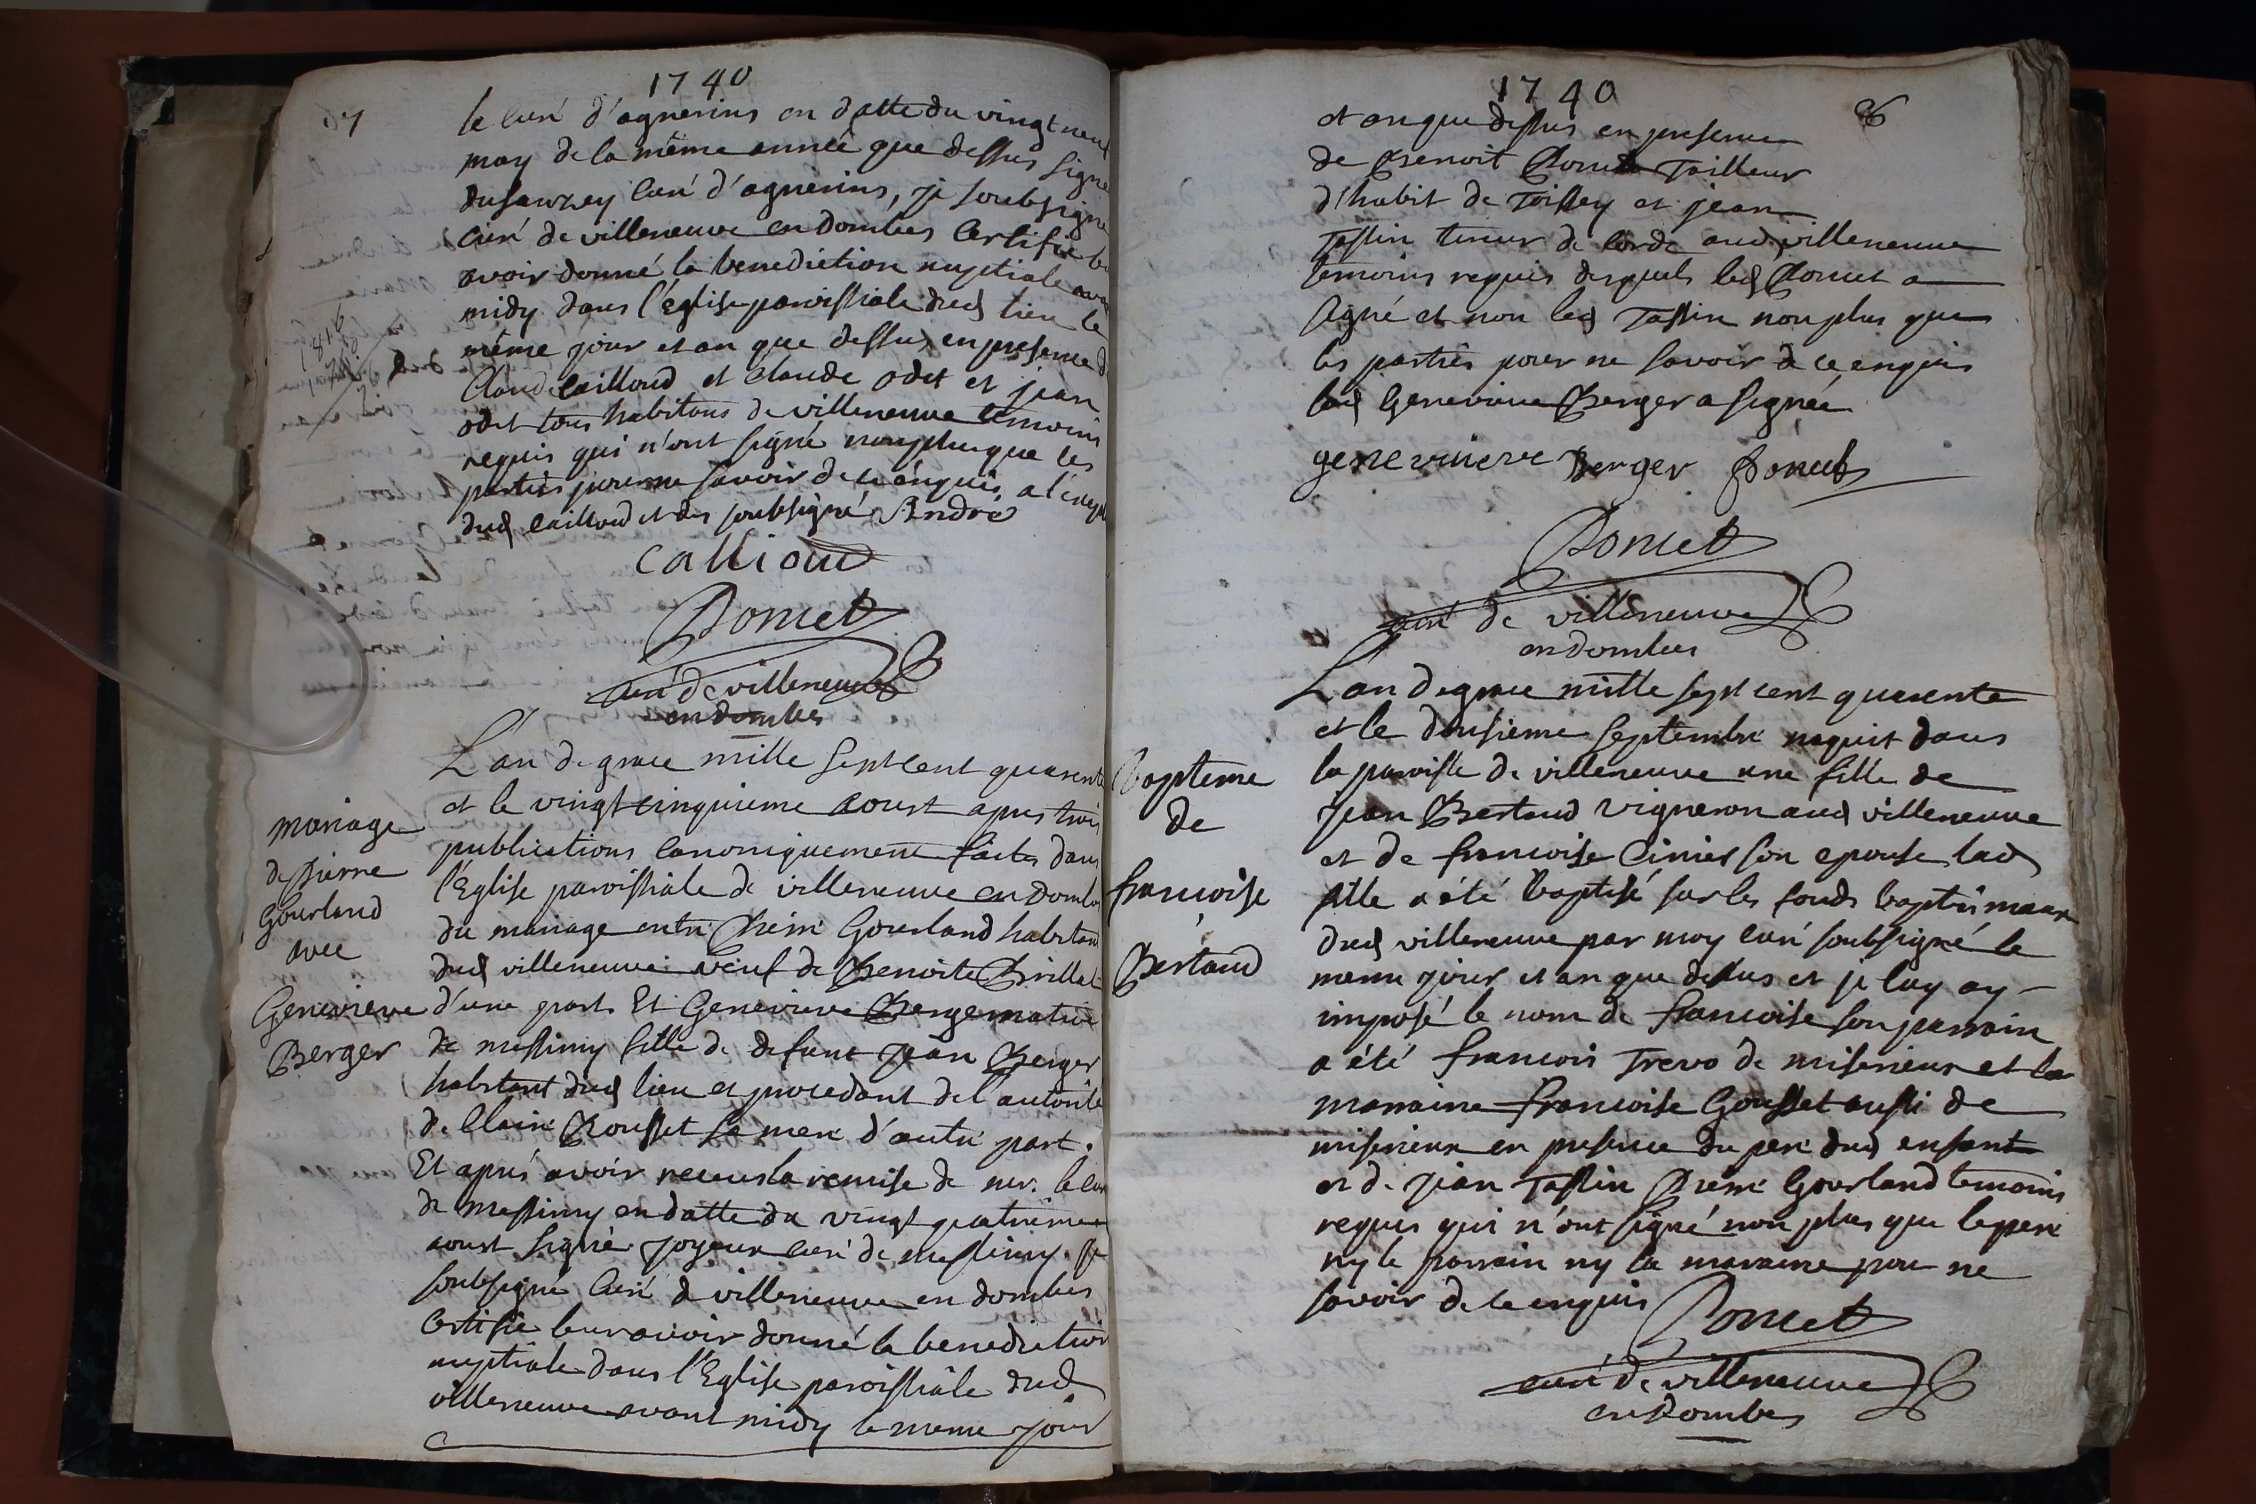 1740
le curé d'agnerins en datte du vingt neuf
may de la même année que dessus signé
dusauzey curé d'agnerins, je soubsigné
curé de villeneuve en Dombes Certifie
avoir donné la benediction nuptiale avant
midy dans l'église paroissiale dud lieu le
même jour et an que dessus en presence
Claude cailloud et Claude odet et jean
odet tous habitans de villeneuve temoins
requis qui n'ont signé non plus que les
parties pour ne savoir de ce enquis, a l'exception
dud cailloud et des soubsigné André
callioud
Poncet
curé de villeneuve
en dombes
mariage
de pierre
Gourland
avec
Genevieve
Berger
L'an de grace mille sept cent quarente
et le vingt cinquieme aoust apres trois
publications canoniquement faites dans
l'Eglise paroissiale de villeneuve en Dombes
du mariage entre Pierre Gourland habitant
dud villeneuve veuf de Benoite Brillet
d'une part Et Genevieve Berger native
de messimy fille de defunt jean Berger
habitant dud lieu et procedant de l'autorité
de Claire Rousset sa mere d'autre part.
Et aprés avoir receus la remise de mr. le curé
de messimy en datte du vingt quatrieme
aoust signé joyeux curé de messimy. je
soubsigné curé de villeneuve en dombes
Certifie leur avoir donné la benediction
nuptiale dans l'Eglise paroissiale dud
villeneuve avant midy le meme jour
1740
et an que dessus en presence
de Benoit Poncet Tailleur
d'habit de Toissey et jean
Tassin teneur de corde aud villeneuve
temoins requis desquels led Poncet a
signé et non led Tassin non plus que
les parties pour ne savoir de ce enquis
lad Genevieve Berger a signée
genevieve Berger Poncet
Poncet
curé de villeneuve
en dombes
Bapteme
de
francoise
Bertaud
L'an de grace mille sept cent quarente
et le dousieme septembre naquit dans
la paroisse de villeneuve une fille de
jean Bertaud vigneron aud villeneuve
et de francoise Cinier son epouse lad
fille a été baptisé sur les fonds baptismaux
dud villeneuve par moy curé soubsigné le
meme jour et an que dessus et je luy ay
imposé le nom de francoise son parrain
a été francois Trevo de miserieux et la
marraine francoise Gousset aussi de
miserieux en presence du pere dud enfant
et de jean Tassin Pierre Gourland temoins
requis qui n'ont signé non plus que le pere
ny le parrain ny la maraine pour ne
savoir de ce enquis
Poncet
curé de villeneuve
en Dombes